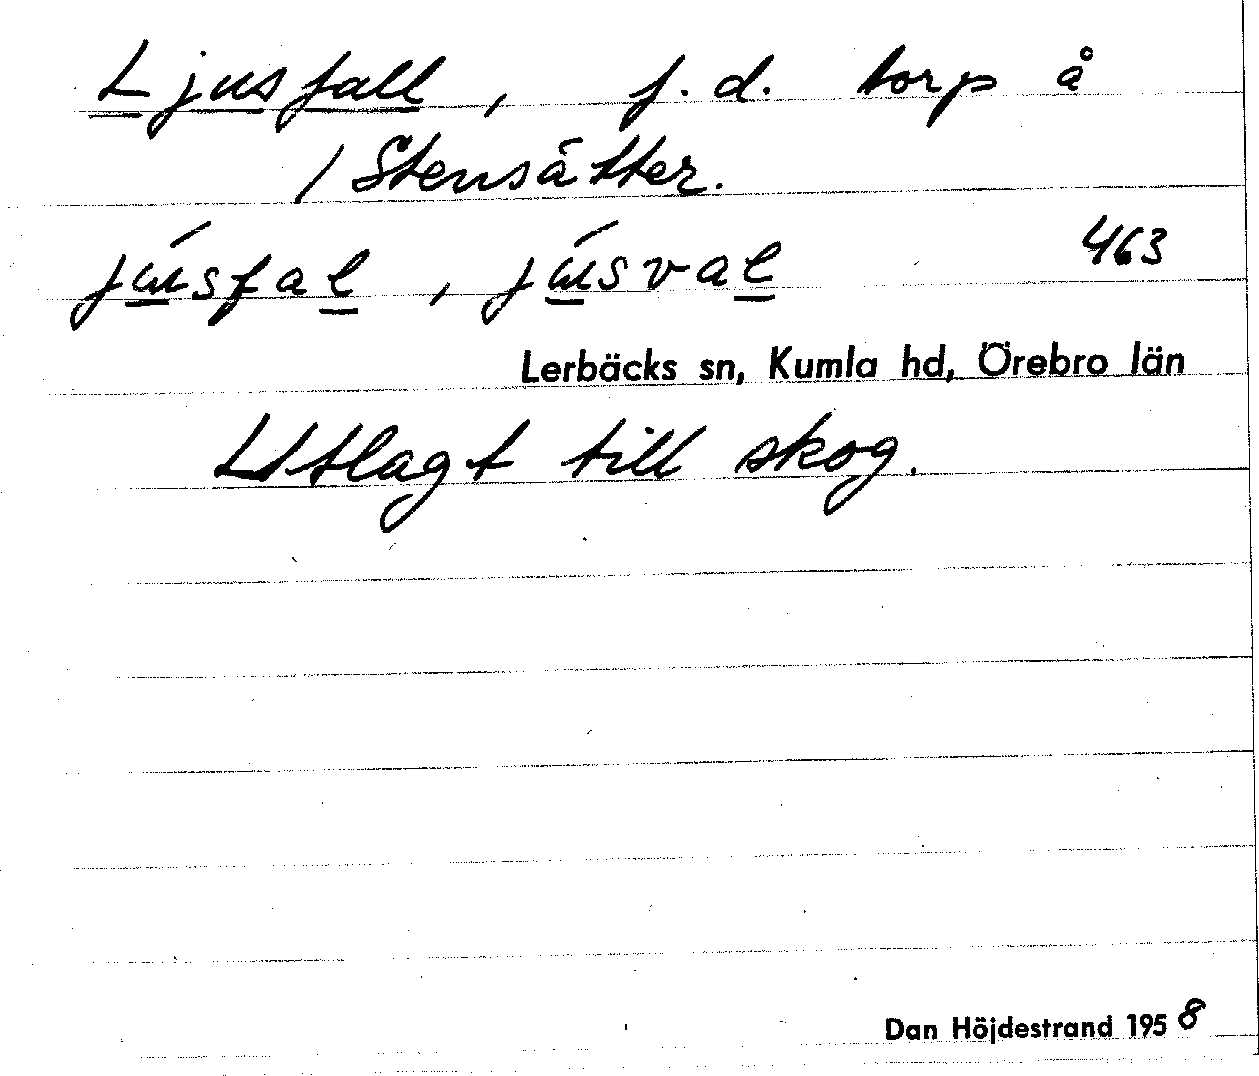 Ljusfall, f. d. torp å
/Stensätter.
júsfal, júsval 463
Lerbäcks sn, Kumla hd, Örebro län
Utlagt till skog.
Dan Höjdestrand 1958